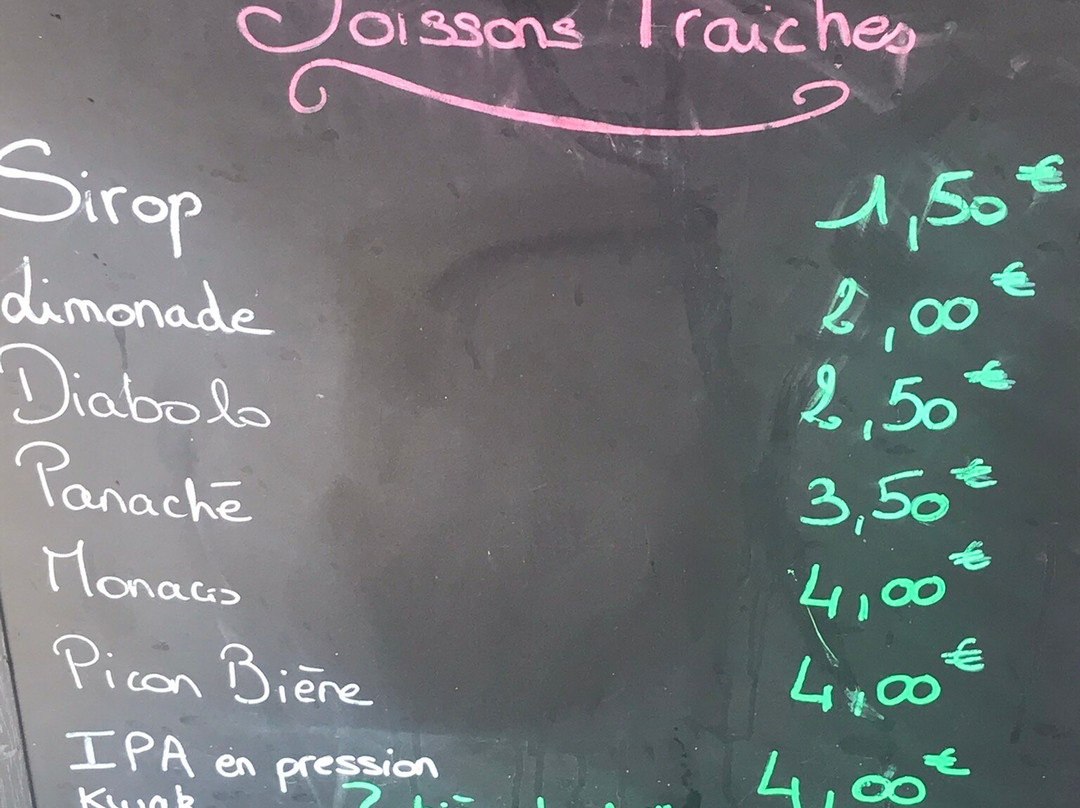 Boissons Fraiches
Sirop 1,50 €
Limonade 2,00 €
Diabolo 2,50 €
Panaché 3,50 €
Monaco 4,00 €
Picon Bière 4,00 €
IPA en pression 4,00 €
Kwak